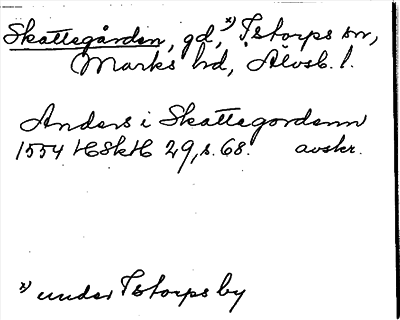 Skattegården, gd,ˣ⁾ Istorps sn,
Marks hd, Älvsb. l.
Anders i Skattegordenn
1554 HSkH 29, s. 68. avskr.
ˣ⁾ under Istorps by